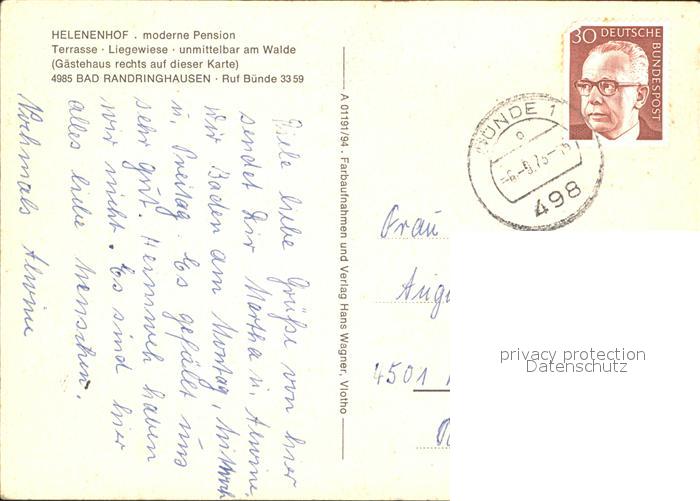 HELENENHOF . moderne Pension
Terrasse · Liegewiese · unmittelbar am Walde
(Gästehaus rechts auf dieser Karte)
4985 BAD RANDRINGHAUSEN · Ruf Bünde 33 59
Viele liebe Grüße von hier
sendet Dir Martha u. Alwine.
Wir Baden am Montag, Mittwoch
u. Freitag. Es gefällt uns
sehr gut. Heimweh haben
wir nicht. Es sind hier
alles liebe Menschen.
Nochmals Alwine
A 01191/94 · Farbaufnahmen und Verlag Hans Wagner, Vlotho
30 DEUTSCHE
BUNDESPOST
BÜNDE 1
498
Frau
4501
privacy protection
Datenschutz